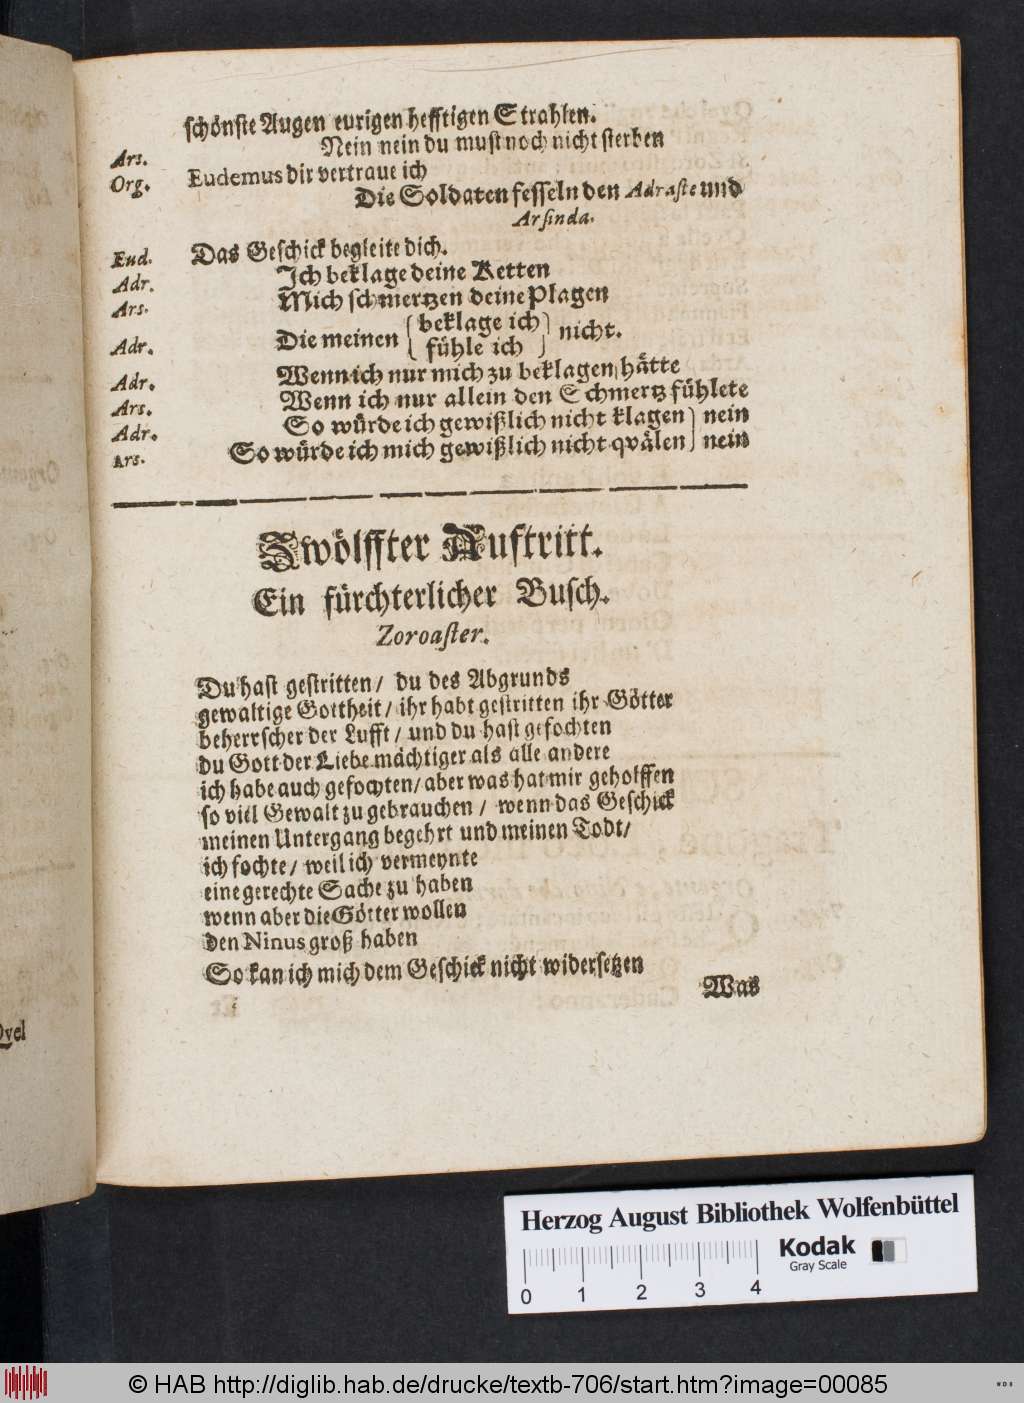 schönste Augen eurigen hefftigen Strahlen.
Ars. Nein nein du must noch nicht sterben
Org. Eudemus dir vertraue ich
Die Soldaten fesseln den Adraste und
Arsinda.
Eud. Das Geschick begleite dich.
Adr. Ich beklage deine Ketten
Ars. Mich schmertzen deine Plagen
Adr. Die meinen { beklage ich } nicht.
{ fühle ich }
Adr. Wenn ich nur mich zu beklagen hätte
Ars. Wenn ich nur allein den Schmertz fühlete
Adr. So würde ich gewißlich nicht klagen ) nein
Ars. So würde ich mich gewißlich nicht qvälen ) nein
Zwölffter Auftritt.
Ein fürchterlicher Busch.
Zoroaster.
Du hast gestritten / du des Abgrunds
gewaltige Gottheit / ihr habt gestritten ihr Götter
beherrscher der Lufft / und du hast gefochten
du Gott der Liebe mächtiger als alle andere
ich habe auch gefochten / aber was hat mir geholffen
so viel Gewalt zu gebrauchen / wenn das Geschick
meinen Untergang begehrt und meinen Todt /
ich fochte / weil ich vermeynte
eine gerechte Sache zu haben
wenn aber die Götter wollen
den Ninus groß haben
So kan ich mich dem Geschick nicht widersetzen
Was
Qvel
Herzog August Bibliothek Wolfenbüttel
Kodak
Gray Scale
0 1 2 3 4
© HAB http://diglib.hab.de/drucke/textb-706/start.htm?image=00085